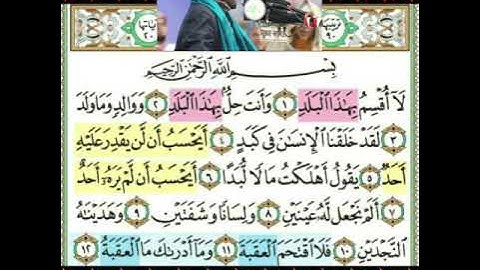 آياتها ٢٠
ترتيبها ٩٠
بِسْمِ اللَّهِ الرَّحْمَٰنِ الرَّحِيمِ
لَآ أُقْسِمُ بِهَٰذَا ٱلْبَلَدِ ١ وَأَنتَ حِلٌّۢ بِهَٰذَا ٱلْبَلَدِ ٢ وَوَالِدٍ وَمَا وَلَدَ
٣ لَقَدْ خَلَقْنَا ٱلْإِنسَٰنَ فِى كَبَدٍ ٤ أَيَحْسَبُ أَن لَّن يَقْدِرَ عَلَيْهِ
أَحَدٌ ٥ يَقُولُ أَهْلَكْتُ مَالًا لُّبَدًا ٦ أَيَحْسَبُ أَن لَّمْ يَرَهُۥٓ أَحَدٌ
٧ أَلَمْ نَجْعَل لَّهُۥ عَيْنَيْنِ ٨ وَلِسَانًا وَشَفَتَيْنِ ٩ وَهَدَيْنَٰهُ
ٱلنَّجْدَيْنِ ١٠ فَلَا ٱقْتَحَمَ ٱلْعَقَبَةَ ١١ وَمَآ أَدْرَىٰكَ مَا ٱلْعَقَبَةُ ١٢